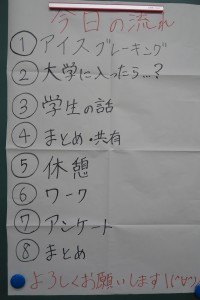 今日の流れ
① アイスブレーキング
② 大学に入ったら…?
③ 学生の話
④ まとめ・共有
⑤ 休憩
⑥ ワーク
⑦ アンケート
⑧ まとめ
よろしくお願いします